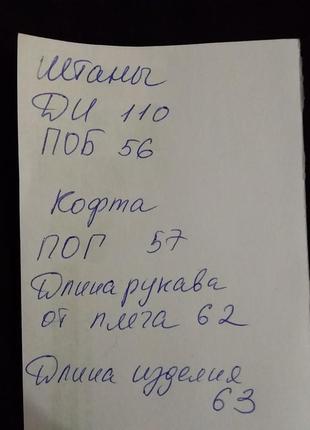 Штаны
ДИ 110
ПОБ 56
Кофта
ПОГ 57
Длина рукава
от плеча 62
Длина изделия
63